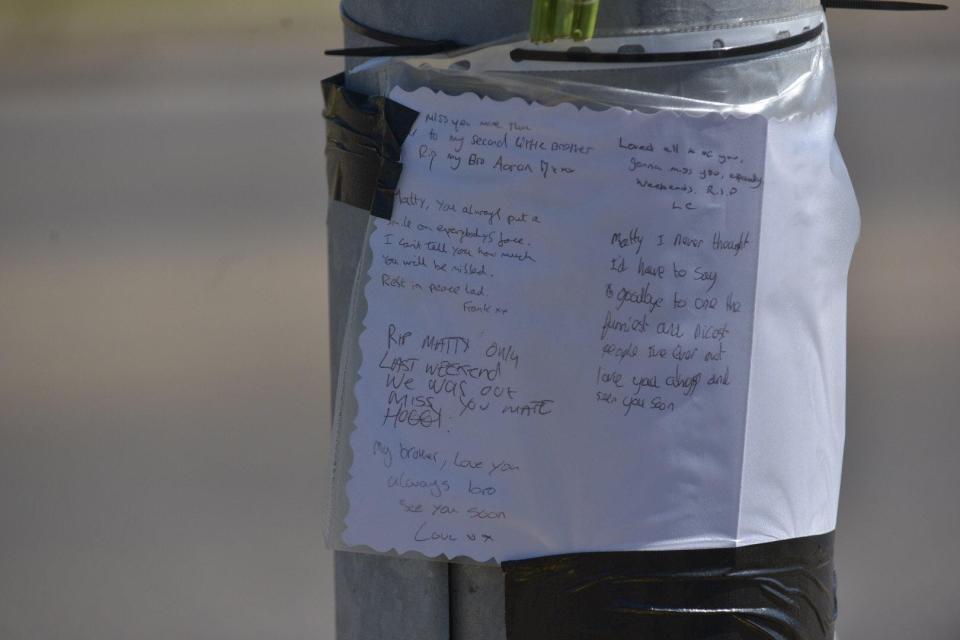 miss you more than
to my second little Brother
Rip my Bro Aaron
Matty, you always put a
smile on everybodys face.
I can't tell you how much
you will be missed.
Rest in peace lad.
Frank xx
RIP MATTY ONLY
LAST WEEKEND
WE WAS OUT
MISS YOU MATE
My brother, Love you
always bro
see you soon
Love x x
Loved all
gonna miss you, especially
weekends. R.I.P
LC
Matty I never thought
I'd have to say
goodbye to one the
funniest and nicest
people I've ever met
love you always and
seen you soon